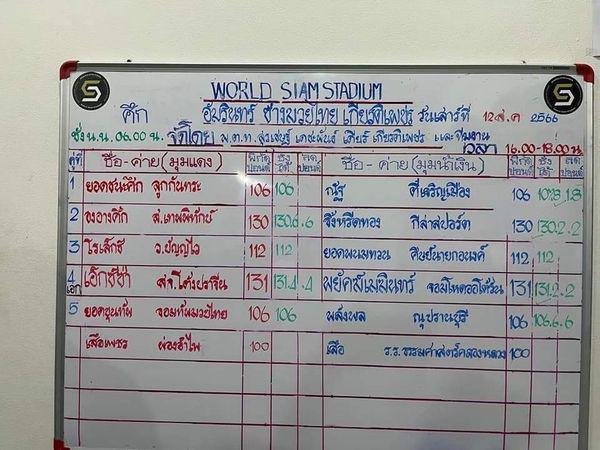 WORLD SIAM STADIUM
ศึก อัมรินทร์ ช้างมวยไทย เกียรติเพชร วันเสาร์ที่ 12 ส.ค 2566
ชั่ง น.น. 06.00 น. จัดโดย พ.ต.ท. สุรเชษฐ์ เดชพันธ์ เสี่ยร์ เกียรติเพชร และทีมงาน เวลา 16.00-18.00 น.
คู่ที่ ชื่อ - ค่าย (มุมแดง) พิกัด ปอนด์ ชั่งได้ ลด ปอนด์ ชื่อ - ค่าย (มุมน้ำเงิน) พิกัด ปอนด์ ชั่งได้ ลด ปอนด์
1 ยอดชนะศึก ลูกกันทระ 106 106 ณัฐ ตี๋เจริญเมือง 106 1.8
2 องอาจศึก ส.เทพพิทักษ์ 130 130.6 .6 จิ้งหรีดทอง กีลาสปอร์ต 130 130.2 .2
3 โรเล็กซ์ ว.ปัญญไว 112 112 ยอดพนมทวน ศิษย์นายกอนงค์ 112 112
4 เอก เอ็กซ์ซ่า สจ.โต้งปราจีน 131 131.4 .4 พยัคฆ์เมมินทร์ จอมโหดออโต้รัน 131 131.2 .2
5 ยอดขุนทัพ จอมทัพมวยไทย 106 106 พลังพล ณุปราณบุรี 106 106.6 .6
เสือเพชร ผ่องอำไพ 100 เสือ ร.ร.ธรรมศาสตร์คลองหลวง 100